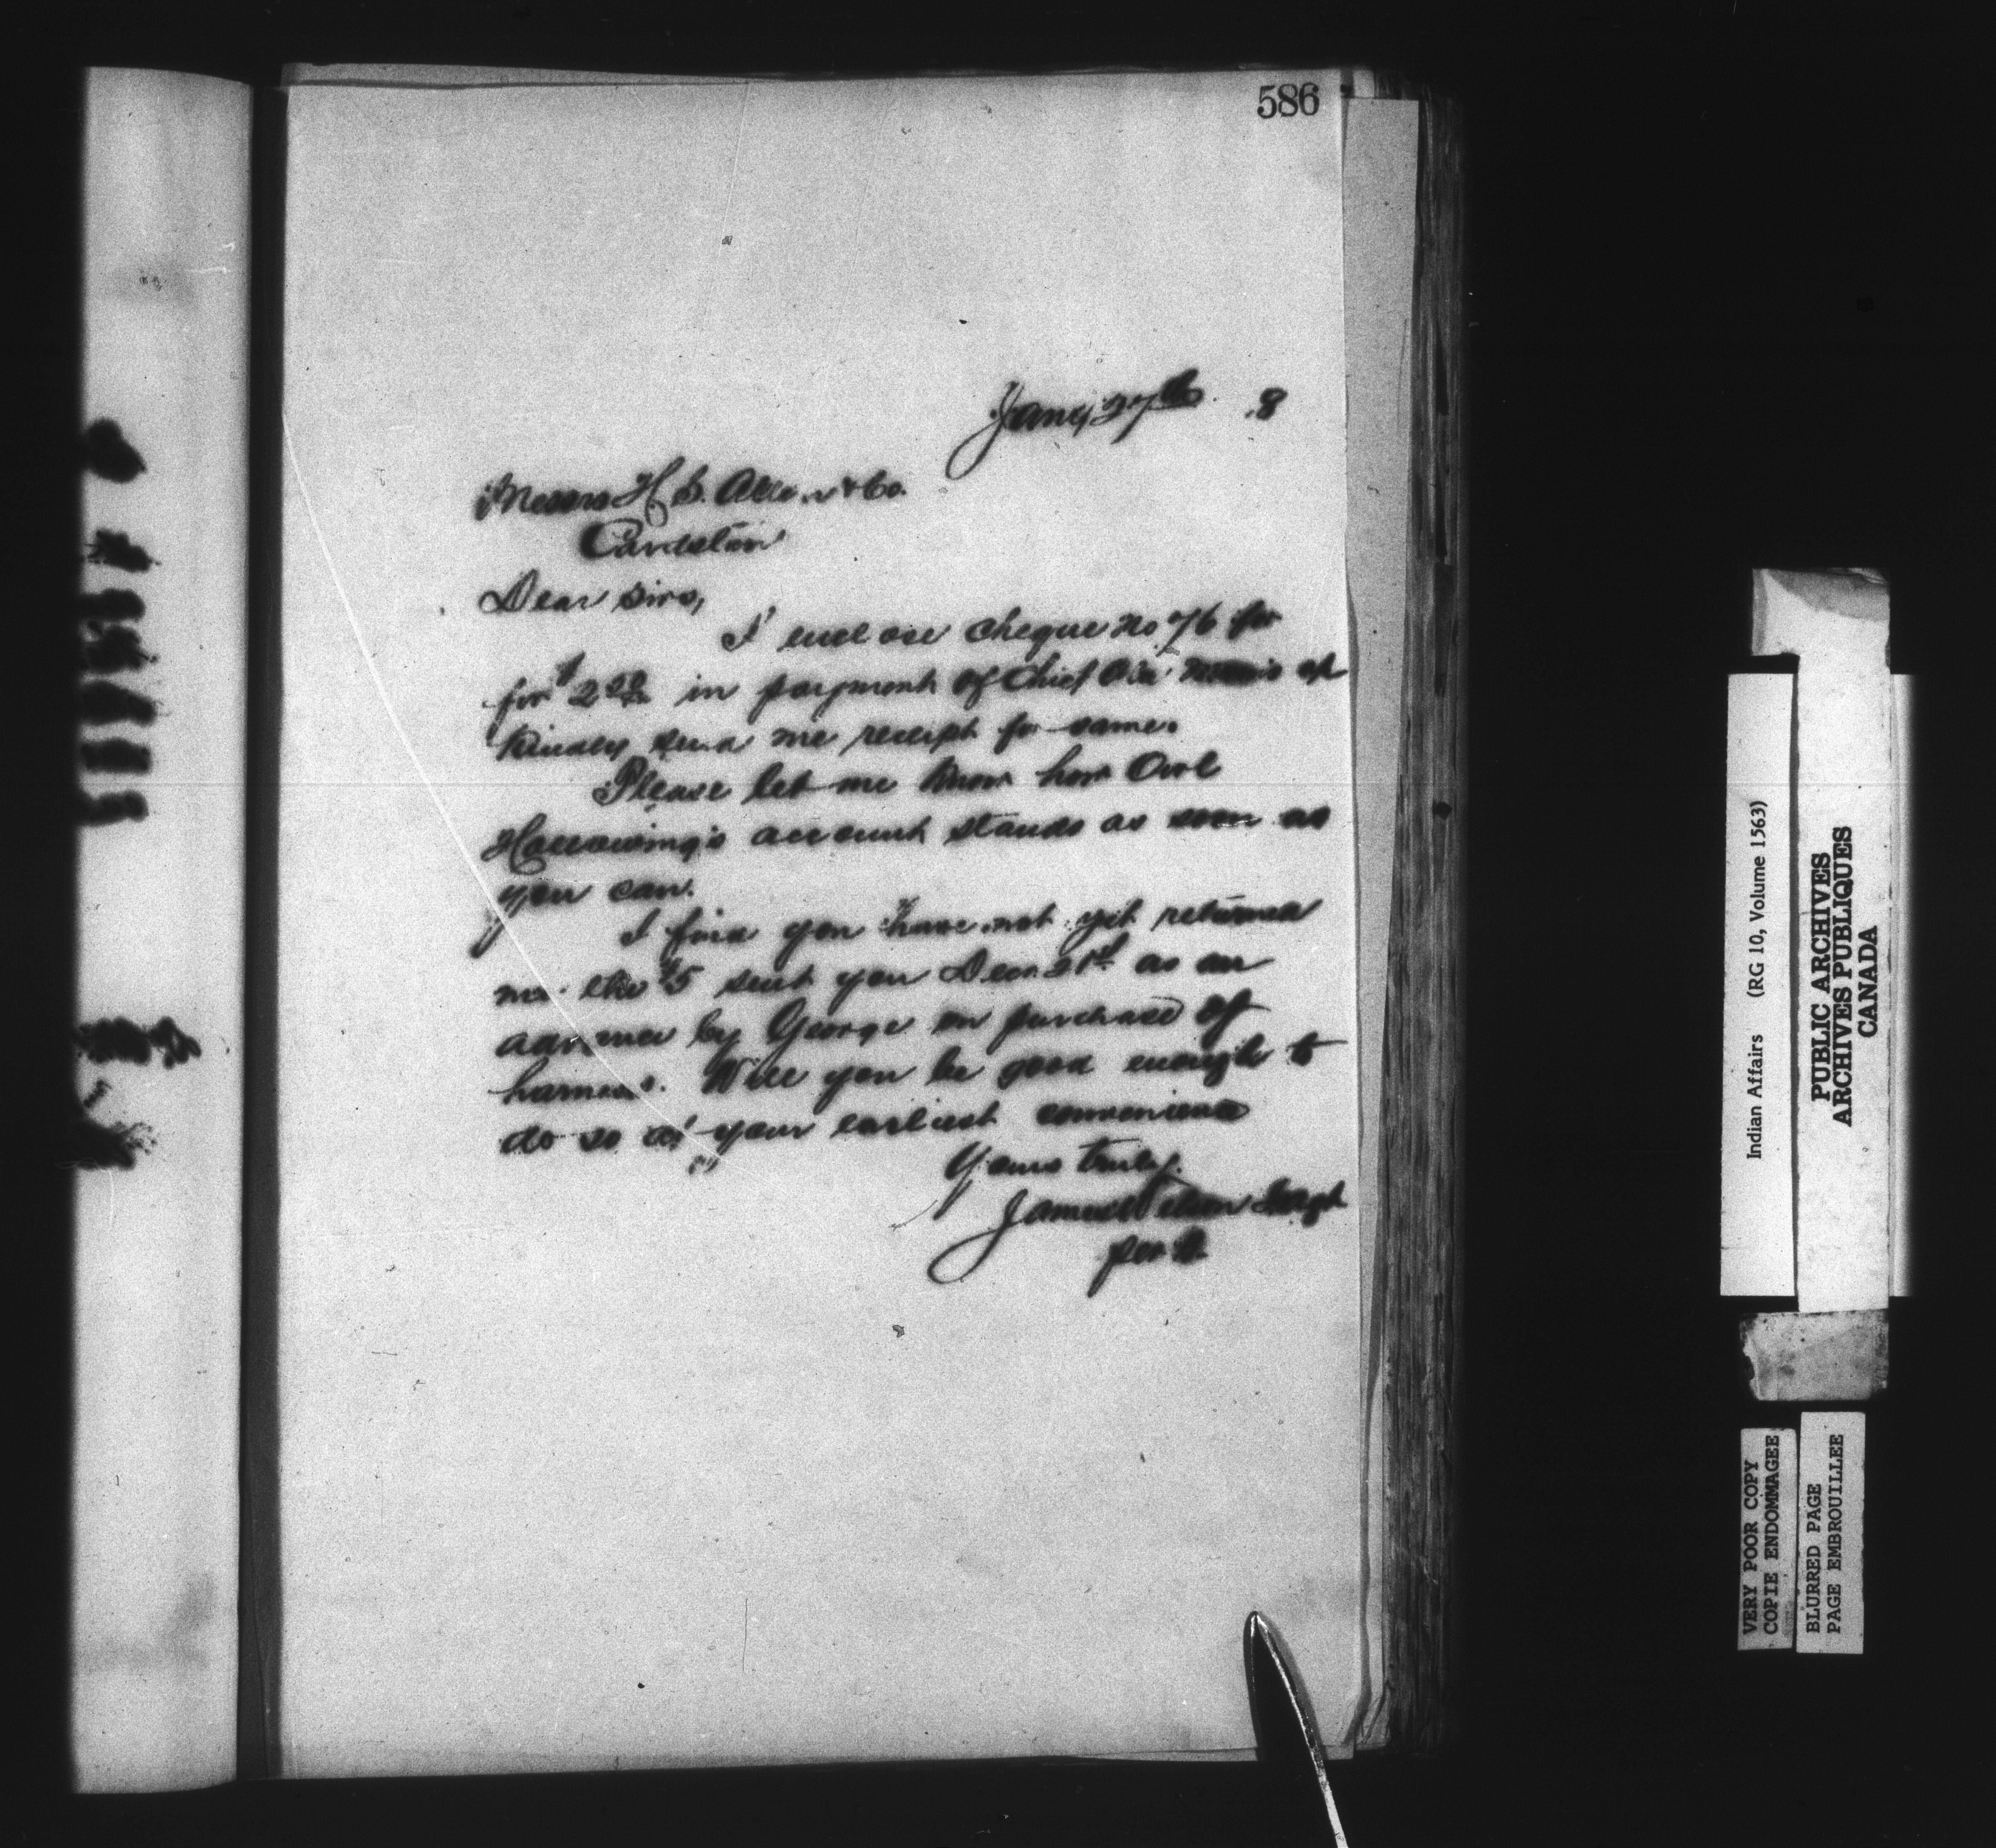 586
Jany 27th 8
Messrs H. S. Allen & Co.
Cardston
Dear Sirs,
I enclose cheque no 76 for
for $2 in payment of Chief
Kindly send me receipt for same.
Please let me know how Owl
account stands as soon as
you can.
I find you have not yet returned
me the $5 sent you Decr 21st as an
advance by George on purchase of
harness. Will you be good enough to
do so at your earliest convenience
Yours truly,
James Wilson Ind Agt
per
Indian Affairs (RG 10, Volume 1563)
PUBLIC ARCHIVES
ARCHIVES PUBLIQUES
CANADA
VERY POOR COPY
COPIE ENDOMMAGEE
BLURRED PAGE
PAGE EMBROUILLEE